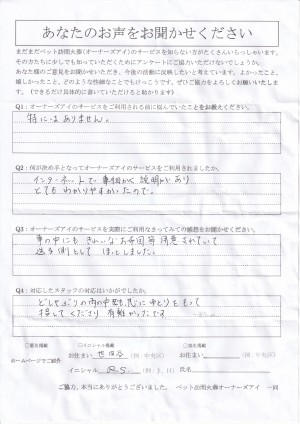 あなたのお声をお聞かせください
まだまだペット訪問火葬(オーナーズアイ)のサービスを知らない方がたくさんいらっしゃいます。
そのかたたちにも少しでも知っていただくためにアンケートにご協力いただけないでしょうか。
あなた様のご意見をお聞かせいただき、今後の活動に反映したいと考えています。よかったこと、
嬉しかったこと、どのような些細なことでもけっこうです。ぜひご協力をよろしくお願いいたします。
(できるだけ具体的に書いていただけると助かります)
Q1:オーナーズアイのサービスをご利用される前に悩んでいたことをお教えください。
特にはありません。
Q2:何が決め手となってオーナーズアイのサービスをご利用されましたか。
インターネットで事細かく説明があり
とてもわかりやすかたので。
Q3:オーナーズアイのサービスを実際にご利用なさってみての感想をお聞かせください。
車の中にもきれいなお花等用意されていて
送る側としてほっとしました。
Q4:対応したスタッフの対応はいかがでしたか。
どしゃぶりの雨の中
接してくださり有難かったです
□匿名掲載
□イニシャル掲載
□実名掲載
ホームページでご紹介
お住まい 世田谷 (例:中央区)
お住まい (例:中央区)
イニシャル R.S. (例:S.H)
氏名
ご協力、本当にありがとうございました。 ペット訪問火葬オーナーズアイ 一同